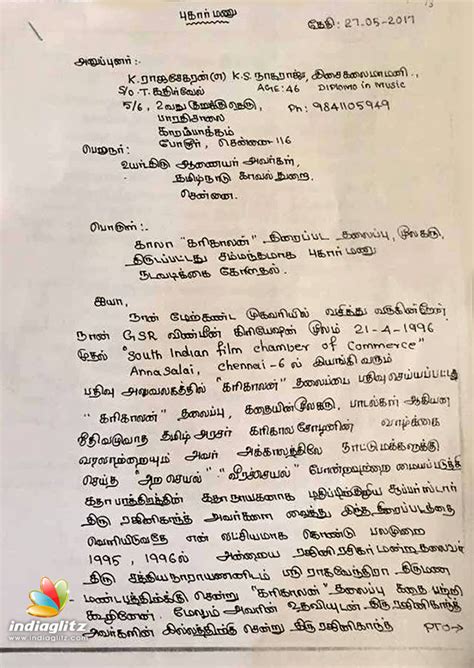 புகார் மனு
தேதி: 27-05-2017
அனுப்புனர்:-
K. ராஜசேகரன் (எ) K.S. நாகராஜா, கலைமாமணி.,
S/O. T. கதிர்வேல் AGE: 46 Diploma in Music
5/6, 2வது குறுக்கு தெரு, Ph: 9841105949
பாரதிசாலை
காரம்பாக்கம்
போரூர், சென்னை 116
பெறுநர்:-
உயர்திரு ஆணையர் அவர்கள்,
தமிழ்நாடு காவல் துறை.
சென்னை.
பொருள்:-
காலா "கரிகாலன்" திரைப்பட தலைப்பு, மூலகரு,
திருடப்பட்டது சம்மந்தமாக புகார் மனு
நடவடிக்கை கோருதல்.
ஐயா,
நான் மேற்கண்ட முகவரியில் வசித்து வருகின்றேன்.
நான் GSR விண்மீன் கிரியேஷன் மூலம் 21-4-1996
முதல் "South Indian film chamber of Commerce"
Anna Salai, chennai-6ல் இயங்கி வரும்
பதிவு அலுவலகத்தில் "கரிகாலன்" தலைப்பை பதிவு செய்யப்பட்டது
"கரிகாலன்" தலைப்பு, கதையின் மூலகரு, பாடல்கள் ஆகியன
நீதிவழுவாத தமிழ் அரசர் கரிகால சோழனின் வாழ்க்கை
வரலாற்றையும் அவர் அக்காலத்திலே நாட்டு மக்களுக்கு
செய்த "அற செயல்" "வீரச்செயல்" போன்றவற்றை மையப்படுத்தி
கதா பாத்திரத்தின் கதாநாயகனாக மதிப்பிற்குரிய சூப்பர் ஸ்டார்
திரு ரஜினிகாந்த் அவர்களை வைத்து இந்த திரைப்படத்தை
வெளியிடுவதே என் லட்சியமாக கொண்டு பலமுறை
1995, 1996ல் அன்றைய ரஜினி ரசிகர் மன்ற தலைவர்
திரு சத்தியநாராயணனிடம் ராகவேந்திரா திருமண
மண்டபத்திற்கு சென்று "கரிகாலன்" தலைப்பு கதை பற்றி
கூறினேன். மேலும் அவரின் உதவியுடன் திரு ரஜினிகாந்த்
அவர்களின் இல்லத்திற்கு சென்று திரு ரஜினிகாந்த் PTO→
indiaglitz
www.indiaglitz.com